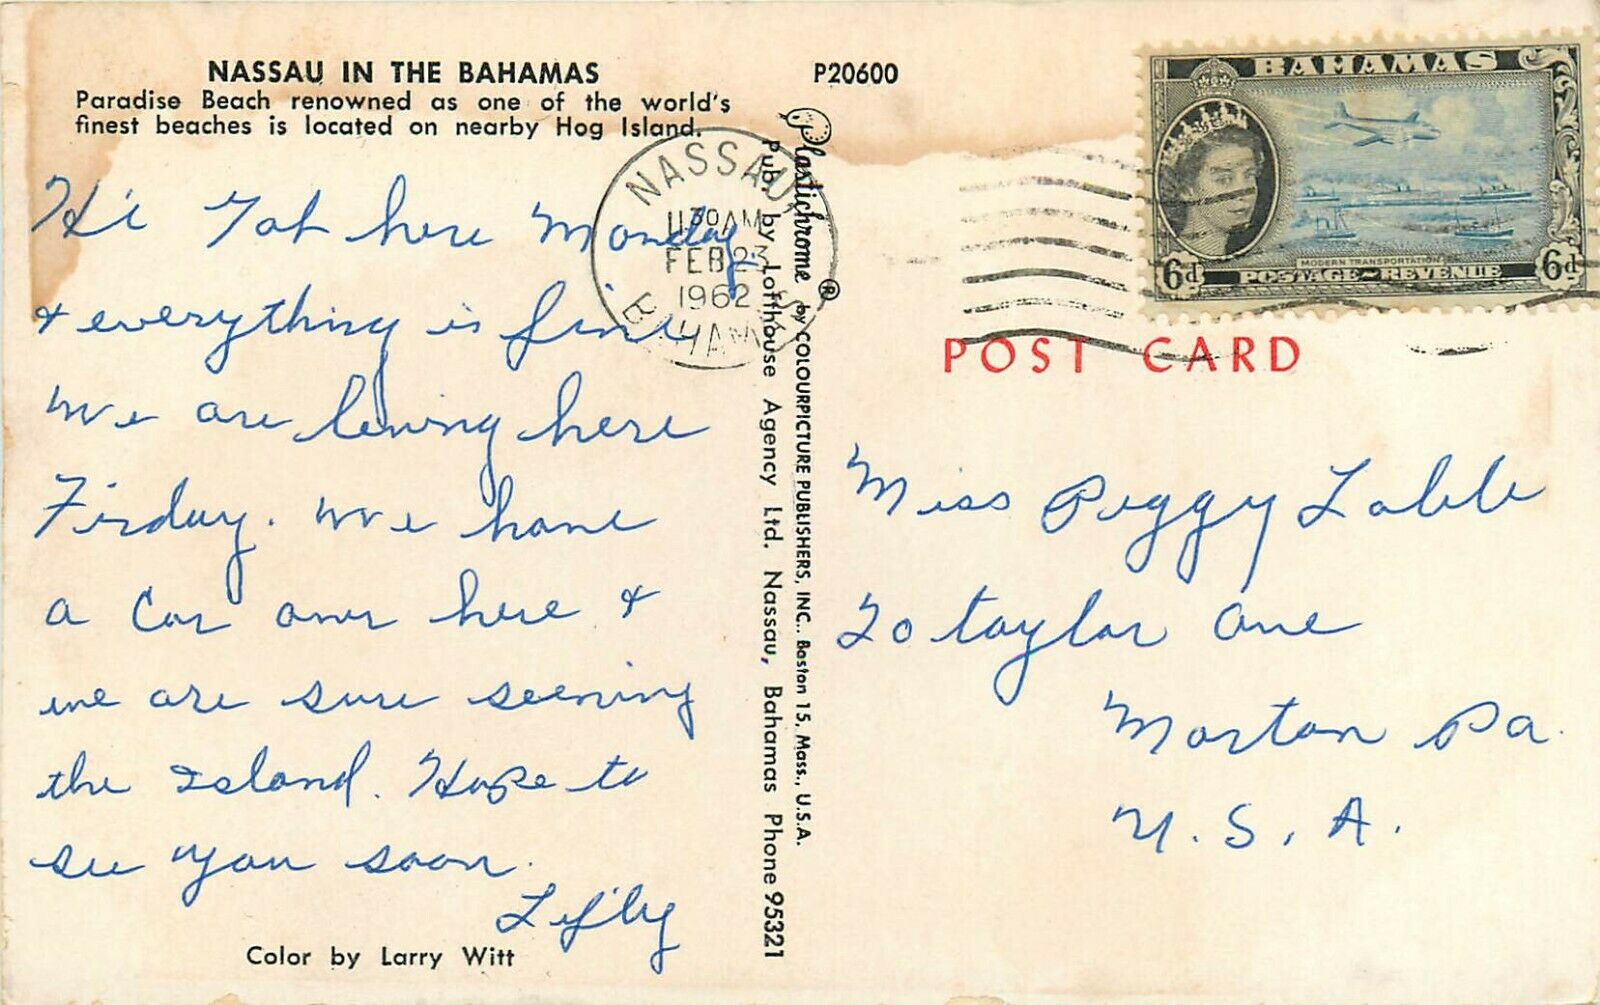 NASSAU IN THE BAHAMAS
Paradise Beach renowned as one of the world's
finest beaches is located on nearby Hog Island.
Hi Got here Monday
& everything is fine
We are leaving here
Firday. We have
a Car over here &
we are sure seening
the Island. Hope to
see you soon.
Lefty
Color by Larry Witt
Plastichrome ® by COLOURPICTURE PUBLISHERS, INC., Boston 15, Mass., U.S.A.
Pub. by Lofthouse Agency Ltd. Nassau, Bahamas Phone 95321
P20600
NASSAU
11 30 AM
FEB 23
1962
BAHAMAS
BAHAMAS
MODERN TRANSPORTATION
6d POSTAGE ~ REVENUE 6d
POST CARD
Miss Peggy
20 taylor Ave
Morton Pa.
U.S.A.